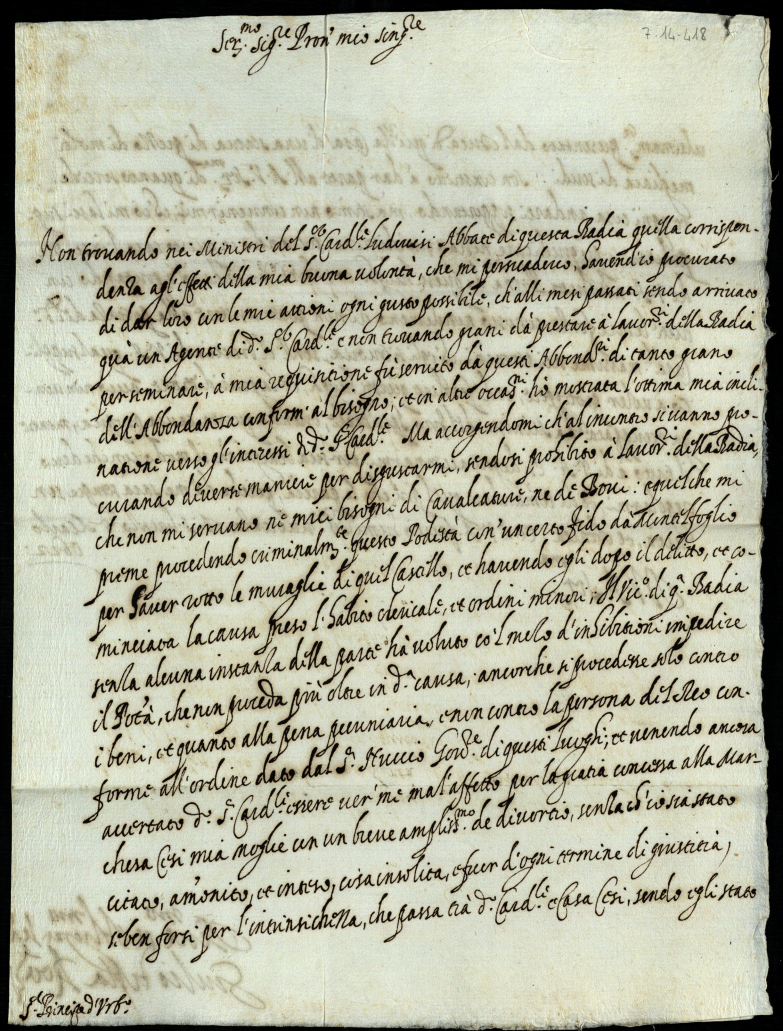 7-14-418
Ser.mo Sig.re Pron' mio sing.re
Non trovando nei Ministri del S.r Card.le Ludovisi Abbate di questa Badia quella corrispon-
denza agl'effetti della mia buona voluntà, che mi persuadevo, havend'io procurato
di dar loro con le mie attioni ogni gusto possibile, ch'alli mesi passati sendo arrivato
quà un Agente di d.o S.r Card.le e non trovando grani dà prestare à Lavor.ri della Badia
per seminare, à mia requisitione fù servito dà questi Abbond.ri di tanto grano
dell'Abbondanza conform' al bisogno; et in altre occas.ni hò mostrata l'ottima mia incli-
natione verso gl'interessi di d.o S.r Card.le Ma accorgendomi ch'al incontro si vanno pro-
curando diverse maniere per disgustarmi, sendosi prohibito à Lavor.ri della Badia,
che non mi servano ne miei bisogni di Cavalcature, ne de Bovi: e quel che mi
preme procedendo criminalm.te questo Podestà con'un certo fido dà Montefoglio
per haver rotto le muraglie di quel Castello, et havendo egli dopo il delitto, et co-
minciata la causa preso l'habito clericale, et ordini minori; Il Vic.o di q.a Badia
senza alcuna instanza della parte hà voluto co'l mezo d'inhibitioni impedire
il Pot.à, che non proceda più oltre in d.a causa, ancorche si procedesse solo contro
i beni, et quanto alla pena pecuniaria, e non contro la persona del Reo con-
forme all'ordine dato dal S.r Stuccio Gov.re di questi luoghi; et venendo ancora
accertato d.o S.r Card.le essere ver' me mal'affetto per la gratia concessa alla Mar-
chesa Cesi mia moglie con un breve ampliss.mo de divortio, senza ch'io sia stato
citato, amonito, et inteso, cosa insolita, e fuor d'ogni termine di giustitia;
se ben forsi per l'intrinsichezza, che passa trà d.o Card.le e Casa Cesi, sendo egli stato
S.r Principe d'Urb.o